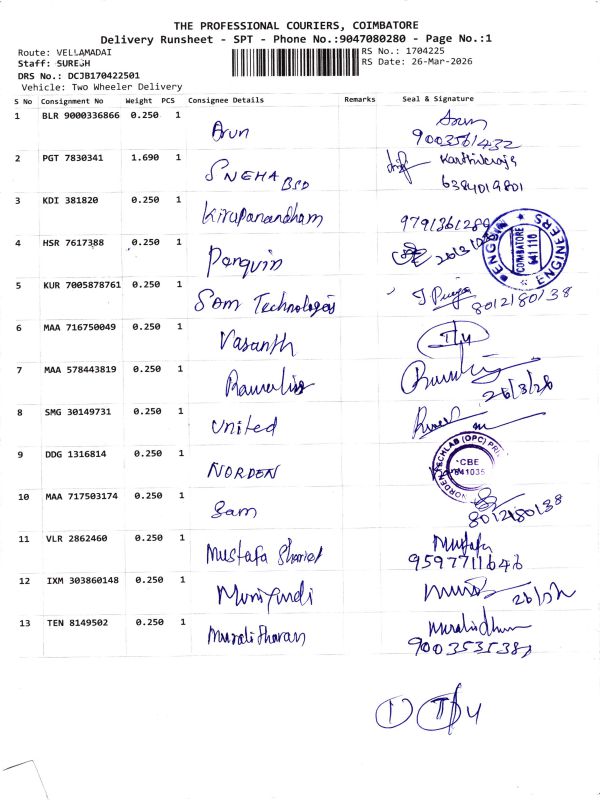 THE PROFESSIONAL COURIERS, COIMBATORE
Delivery Runsheet - SPT - Phone No.:9047080280 - Page No.:1
Route: VELLAMADAI
RS No.: 1704225
Staff: SURESH
RS Date: 26-Mar-2026
DRS No.: DCJB170422501
Vehicle: Two Wheeler Delivery
S No Consignment No Weight PCS Consignee Details Remarks Seal & Signature
1 BLR 9000336866 0.250 1 Arun Arun
9003561432
2 PGT 7830341 1.690 1 SNEHA BSD Karthikraja
6384019801
3 KDI 381820 0.250 1 Kirupanandham 9791361289
4 HSR 7617388 0.250 1 Penguin
PENGUIN ENGINEERS
COIMBATORE
641 110
5 KUR 7005878761 0.250 1 Som Technologies
8012180138
6 MAA 716750049 0.250 1 Vasanth
7 MAA 578443819 0.250 1 Ramalis
26/3/26
8 SMG 30149731 0.250 1 United
9 DDG 1316814 0.250 1 NORDEN
NORDEN TECHLAB (OPC)
CBE
641035
10 MAA 717503174 0.250 1 Sam
8012180138
11 VLR 2862460 0.250 1 Mustafa Mustafa
9597711646
12 IXM 303860148 0.250 1 Muniyandi
13 TEN 8149502 0.250 1 Muralidharan Muralidharan